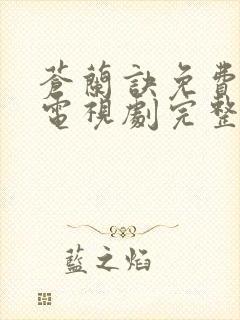 蒼蘭訣免費
電視劇完整
藍之焰